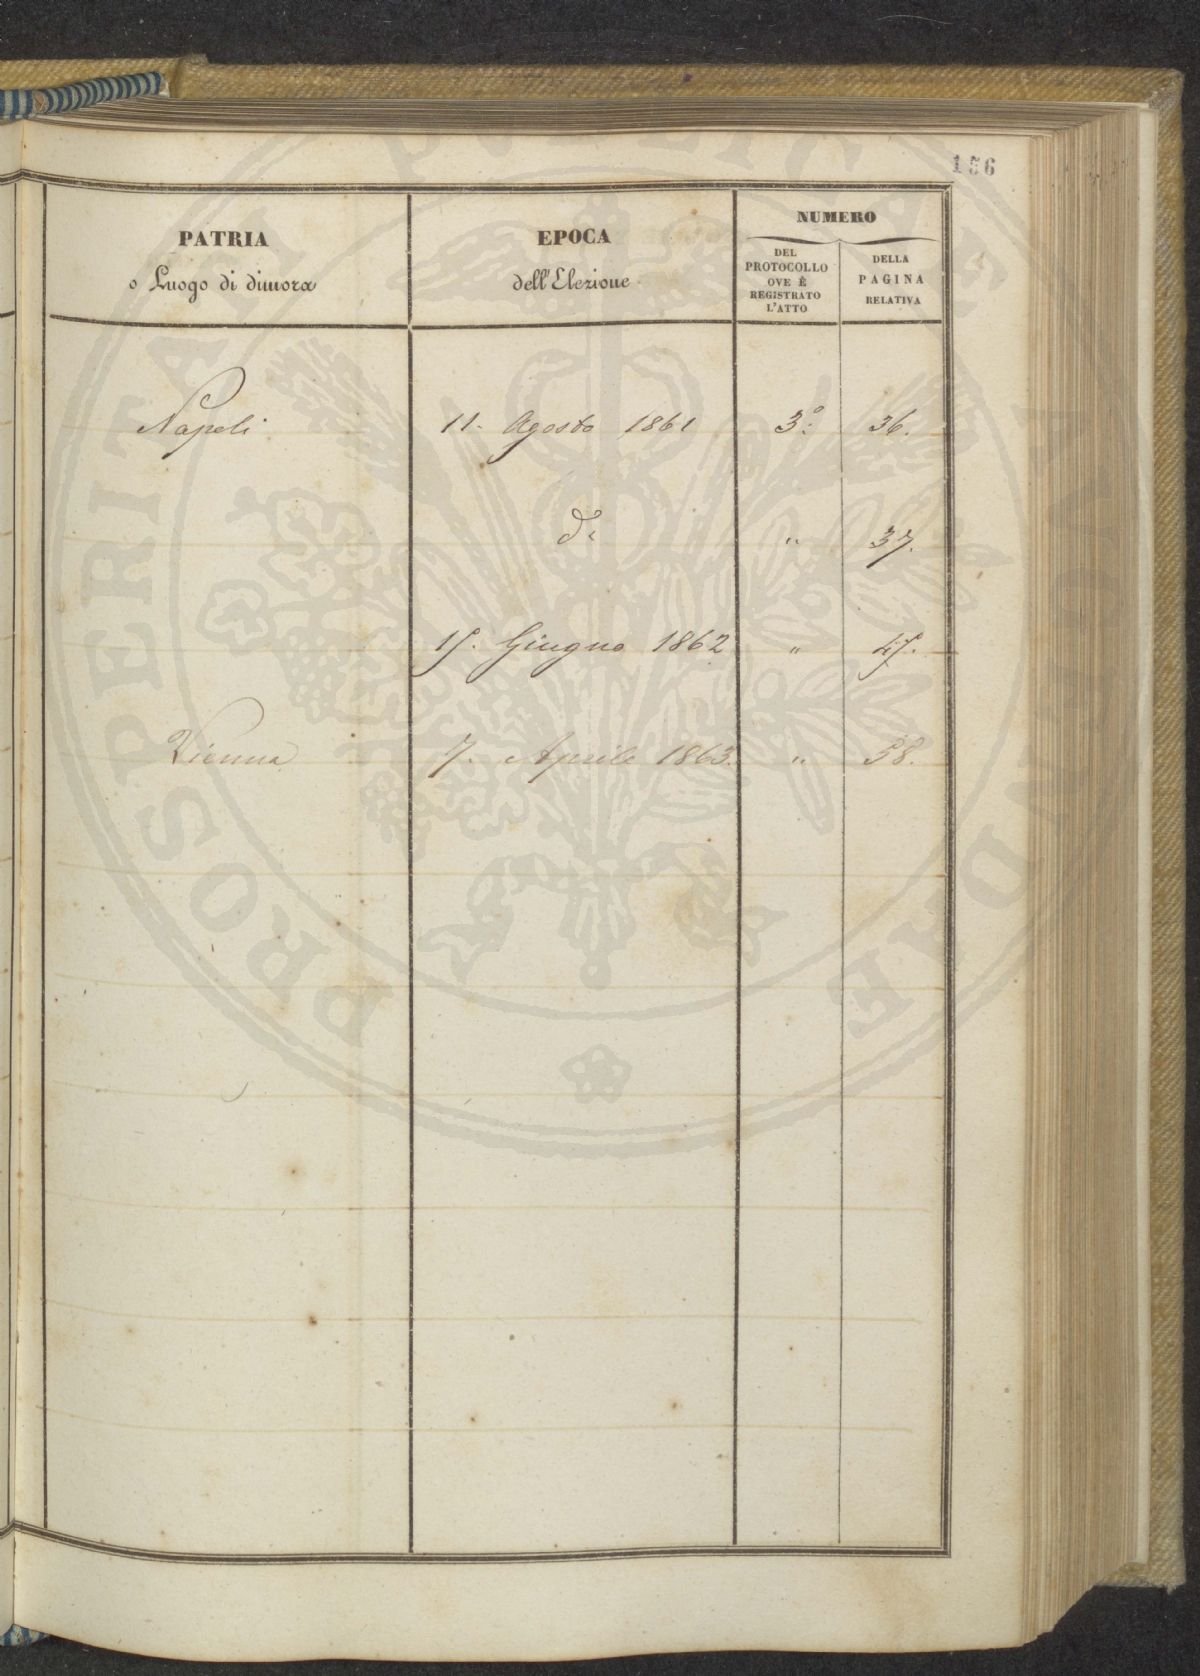 156
PATRIA
o Luogo di dimora
EPOCA
dell'Elezione
NUMERO
DEL
PROTOCOLLO
OVE È
REGISTRATO
L'ATTO
DELLA
PAGINA
RELATIVA
Napoli 11. Agosto 1861 3º: 36.
dº " 37.
15. Giugno 1862 " 45.
Vienna 7. Aprile 1863. " 58.
PROSPERITATI PUBLICAE AUGENDAE